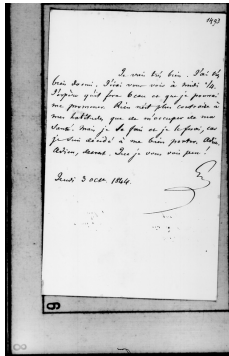 1493
Je vais très bien. J'ai très
bien dormi. J'irai vous voir à midi 1/2.
J'espère qu'il fera beau ce que je pourrai
me promener. Rien n'est plus contraire à
mes habitudes que de m'occuper de ma
santé. Mais je le fais et je le ferai, car
je suis décidé à me bien porter. Adieu,
Adieu, Que je vous vois peu !
Jeudi 3 1844.
9
8